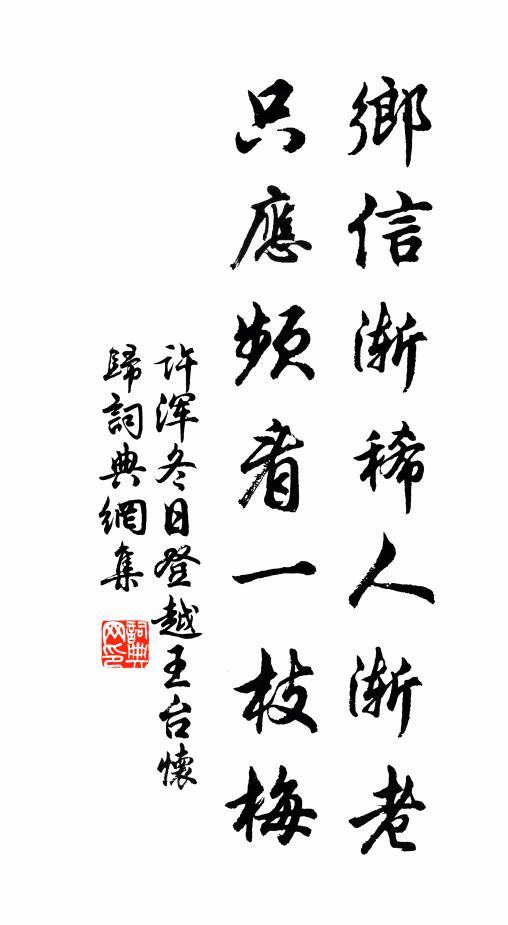 鄉信漸稀人漸老
只應頻看一枝梅
許渾冬日登越王台懷
歸詞典網集
詞典
网印